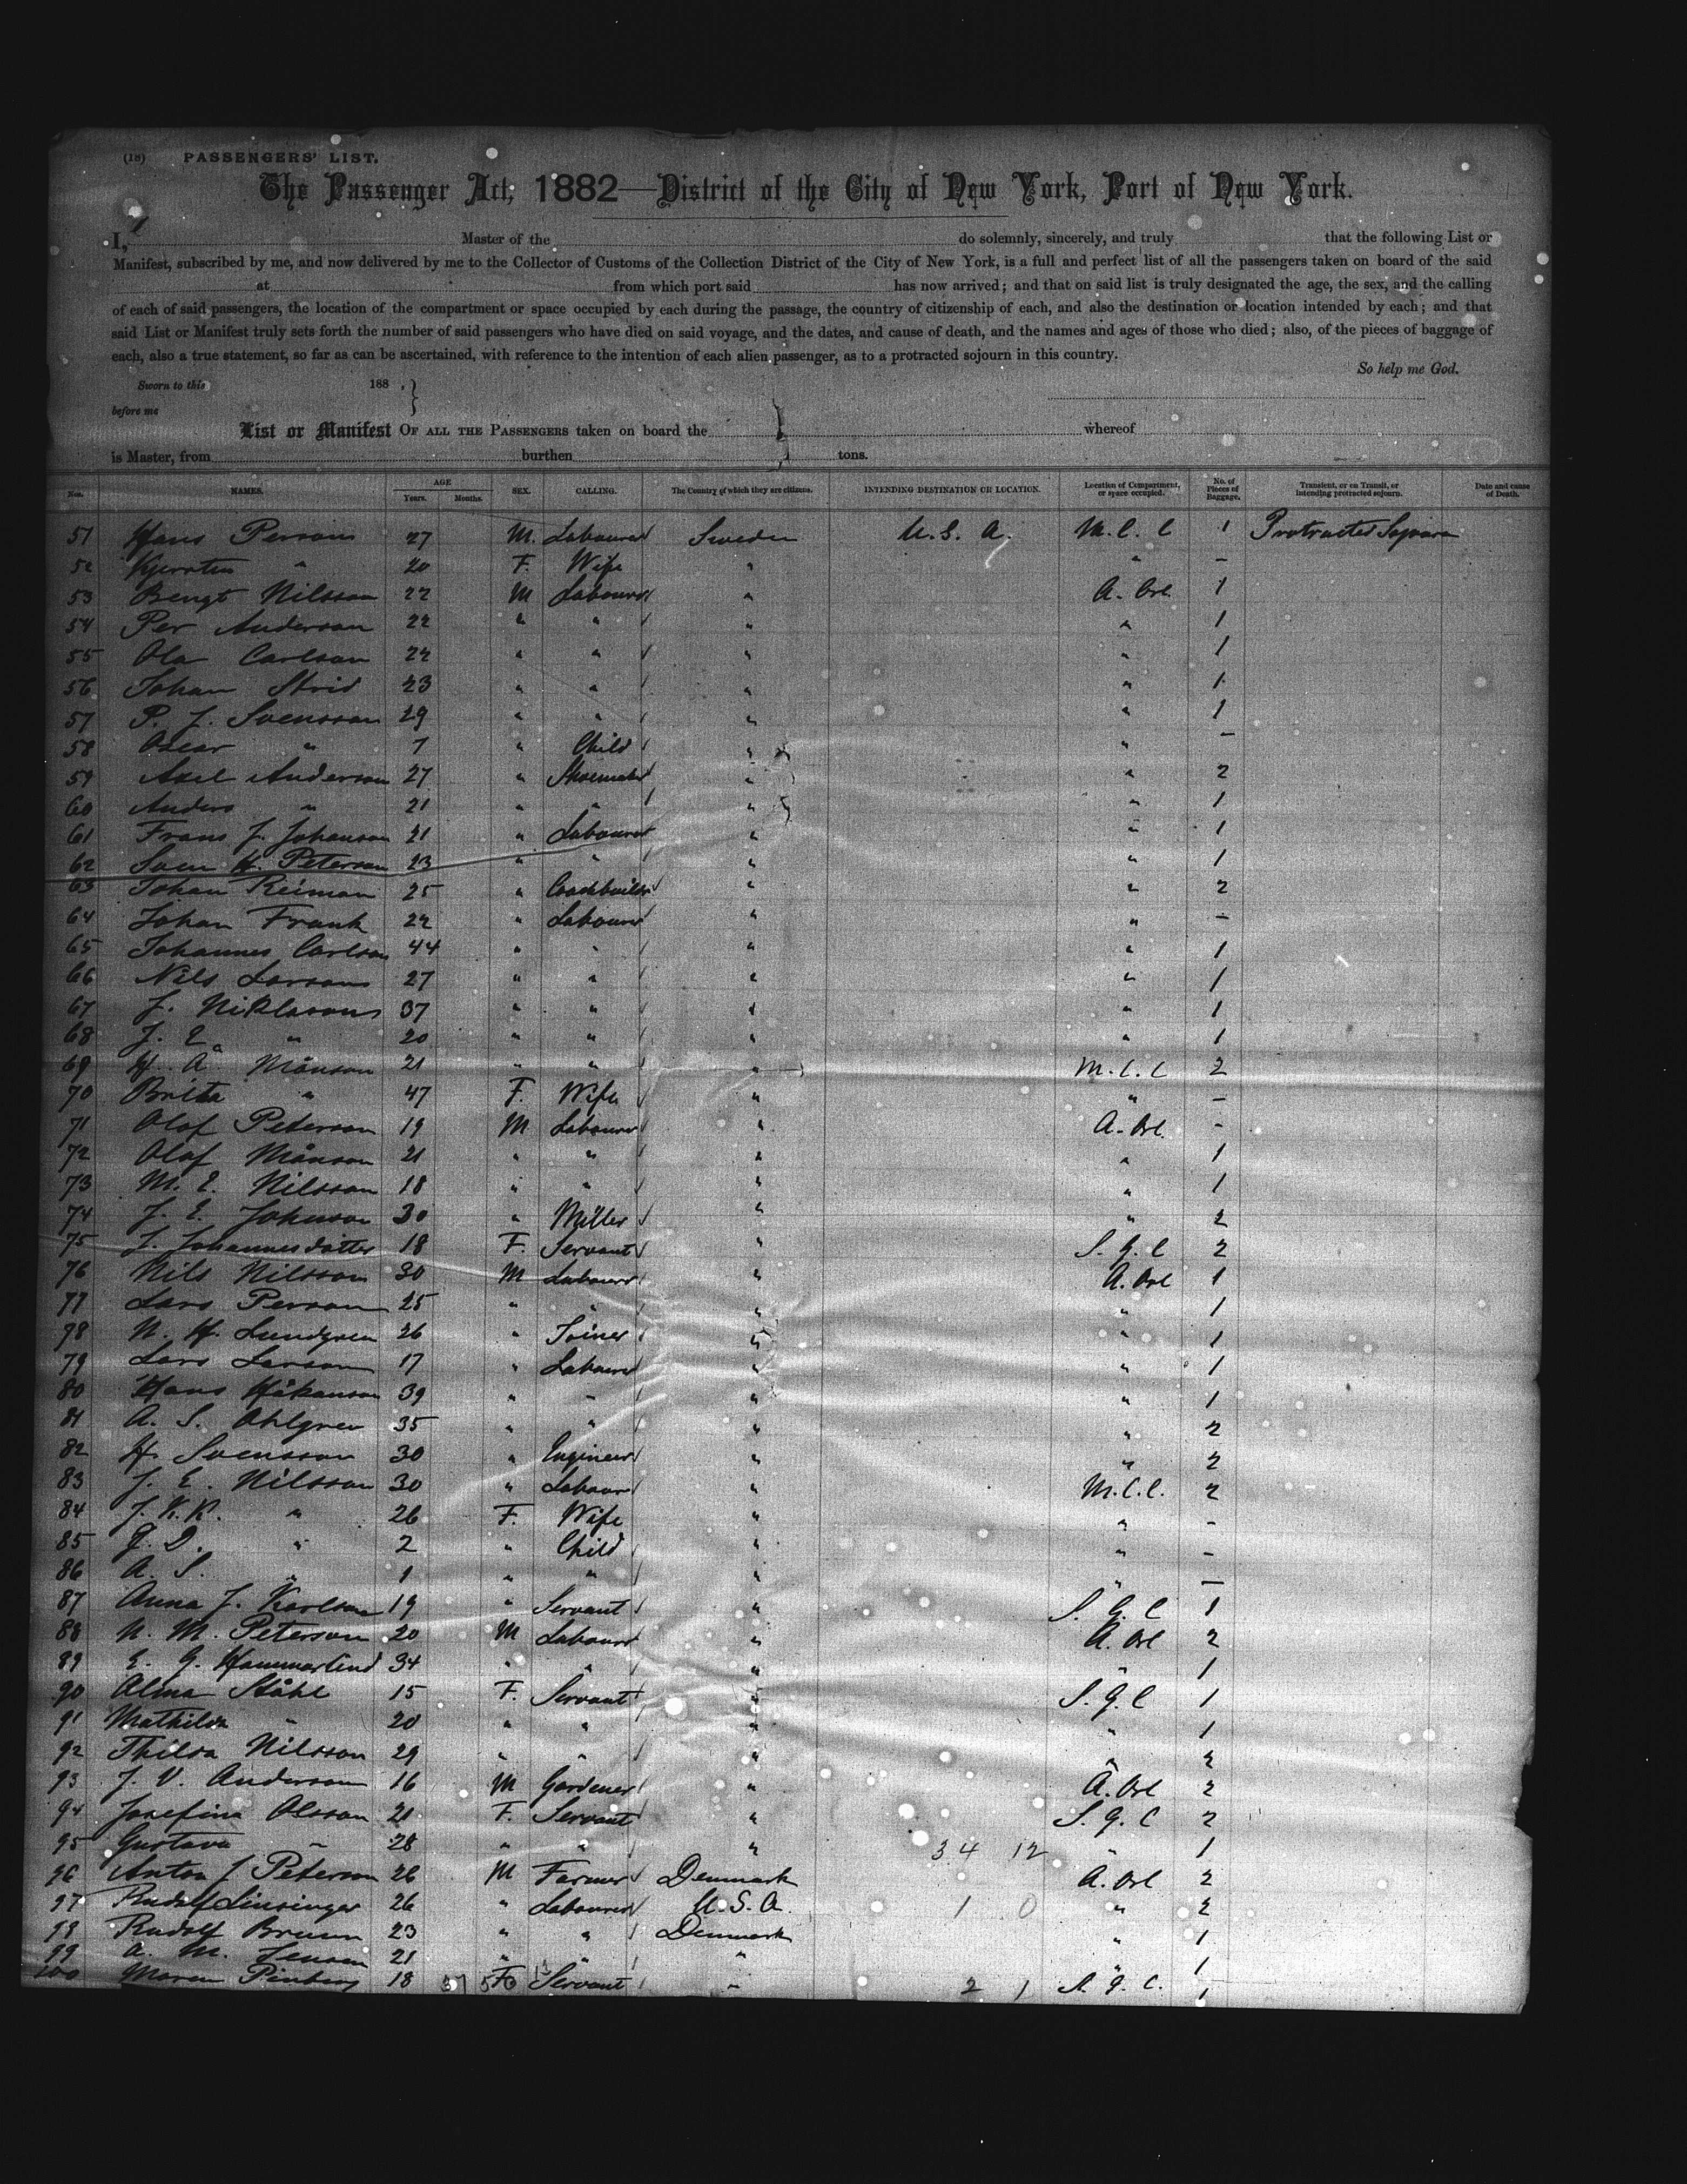 (18) PASSENGERS' LIST.
The Passenger Act, 1882—District of the City of New York, Port of New York.
I, Master of the do solemnly, sincerely, and truly that the following List or
Manifest, subscribed by me, and now delivered by me to the Collector of Customs of the Collection District of the City of New York, is a full and perfect list of all the passengers taken on board of the said
at from which port said has now arrived; and that on said list is truly designated the age, the sex, and the calling
of each of said passengers, the location of the compartment or space occupied by each during the passage, the country of citizenship of each, and also the destination or location intended by each; and that
said List or Manifest truly sets forth the number of said passengers who have died on said voyage, and the dates, and cause of death, and the names and ages of those who died; also, of the pieces of baggage of
each, also a true statement, so far as can be ascertained, with reference to the intention of each alien passenger, as to a protracted sojourn in this country.
So help me God.
Sworn to this 188 ,
before me
List or Manifest OF ALL THE PASSENGERS taken on board the whereof
is Master, from burthen tons.
Nos. NAMES. AGE Years. Months. SEX. CALLING. The Country of which they are citizens. INTENDING DESTINATION OR LOCATION. Location of Compartment, or space occupied. No. of Pieces of Baggage. Transient, or en Transit, or intending protracted sojourn. Date and cause of Death.
51 Hans Persons 27 M. Labourer Sweden U. S. A. M. C. C 1 Protracted
52 Kjersten " 20 F. Wife " " –
53 Bengt Nilsson 22 M Labourer " A. Orl. 1
54 Per Anderson 22 " " " " 1
55 Ola Carlson 22 " " " " 1
56 Johan Strid 23 " " " " 1
57 P. J. Svensson 29 " " " " 1
58 Oscar " 7 " Child " " –
59 Axel Anderson 27 " Shoemaker " " 2
60 Anders " 21 " " " " 1
61 Frans J. Johanson 21 " Labourer " " 1
62 Sven H. Peterson 23 " " " " 1
63 Johan Reiman 25 " Coachbuilder " " 2
64 Johan Frank 22 " Labourer " " –
65 Johannes Carlson 44 " " " " 1
66 Nils Larsons 27 " " " " 1
67 J. Niklasons 37 " " " " 1
68 J. E. " 20 " " " " 1
69 H. Å Månson 21 " " " M. C. C 2
70 Brita " 47 F. Wife " " –
71 Olof Peterson 19 M Labourer " A. Orl. –
72 Olof Månson 21 " " " " 1
73 M. E. Nilsson 18 " " " " 1
74 J. E. Johnson 30 " Miller " " 2
75 J. Johannesdotter 18 F. Servant " S. G. C 2
76 Nils Nilsson 30 M Labourer " A. Orl 1
77 Lars Person 25 " " " " 1
78 N. H. Lundgren 26 " Joiner " " 1
79 Lars Larson 17 " Labourer " " 1
80 Hans Håkanson 39 " " " " 1
81 A. S. Ohlgren 35 " " " " 2
82 H. Svensson 30 " Engineer " " 2
83 J. E. Nilsson 30 " Labourer " M. C. C. 2
84 J. K. K. " 26 F. Wife " " –
85 J. D. " 2 " Child " " –
86 A. S. " 1 " " " " –
87 Anna J. Karlson 19 " Servant " S. G. C 1
88 N. M. Peterson 20 M Labourer " A. Orl 2
89 E. G. Hammarlund 34 " " " " 1
90 Alma Ståhl 15 F. Servant " S. G. C 1
91 Mathilda " 20 " " " " 1
92 Thilda Nilsson 29 " " " " 2
93 J. V. Anderson 16 M Gardener " A. Orl 2
94 Josefina Olsson 21 F. Servant " S. G. C 2
95 Gustava " 28 " " " 34 12 " 1
96 Anton J Peterson 26 M Farmer Denmark A. Orl 2
97 Rudolf Linsinger 26 " Labourer U. S. A. 1 0 " 2
98 Rudolf Bruun 23 " " Denmark " 1
99 A. M. Jensen 21 " " " " 1
100 Maren 18 F. Servant " 2 1 S. G. C. 1